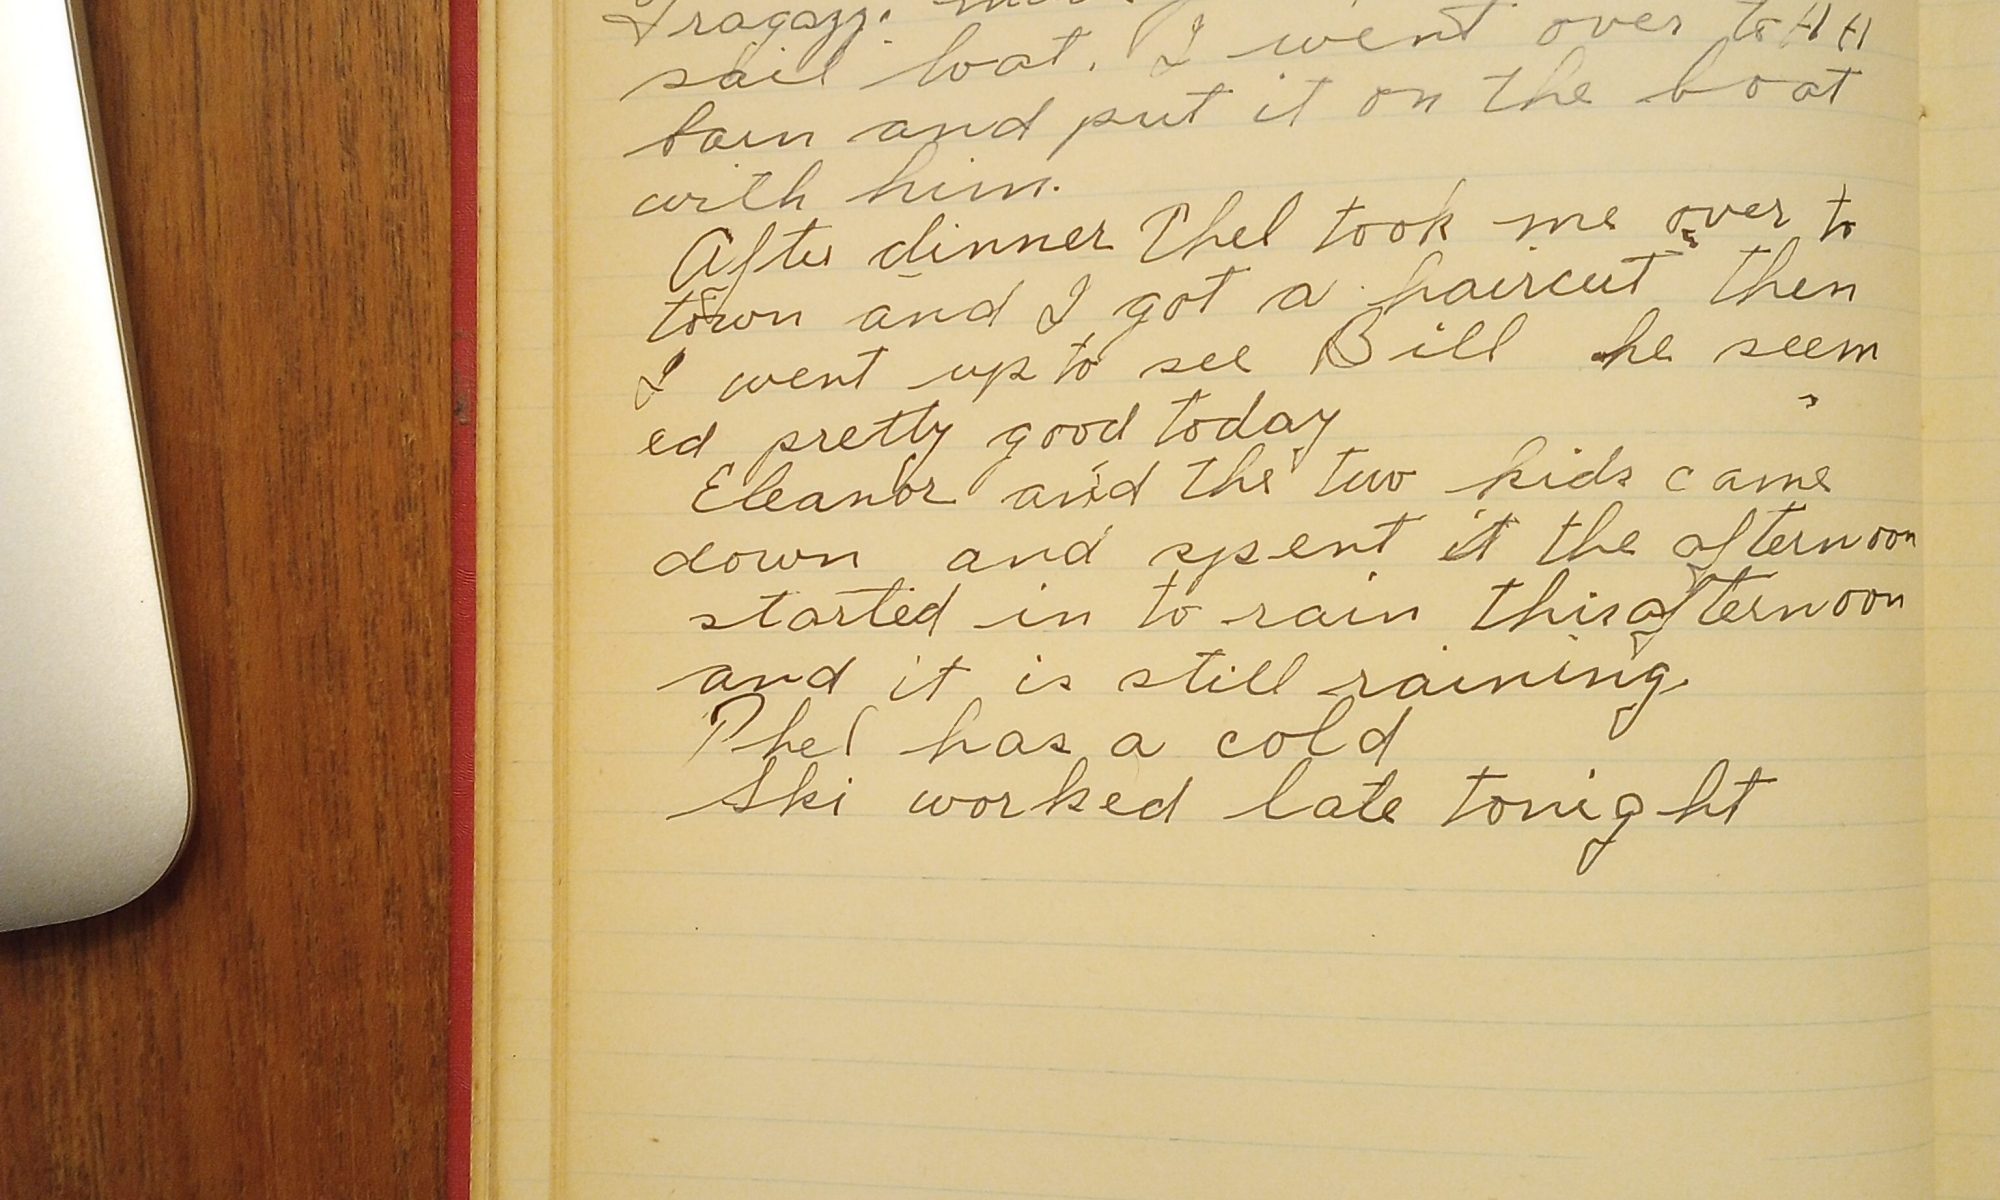 Fragazzi
sail boat. I went over to H H
barn and put it on the boat
with him.
After dinner Phel took me over to
town and I got a haircut then
I went up to see Bill he seem
ed pretty good today
Eleanor and the two kids came
down and spent it the afternoon
started in to rain this afternoon
and it is still raining.
Phel has a cold
Ski worked late tonight